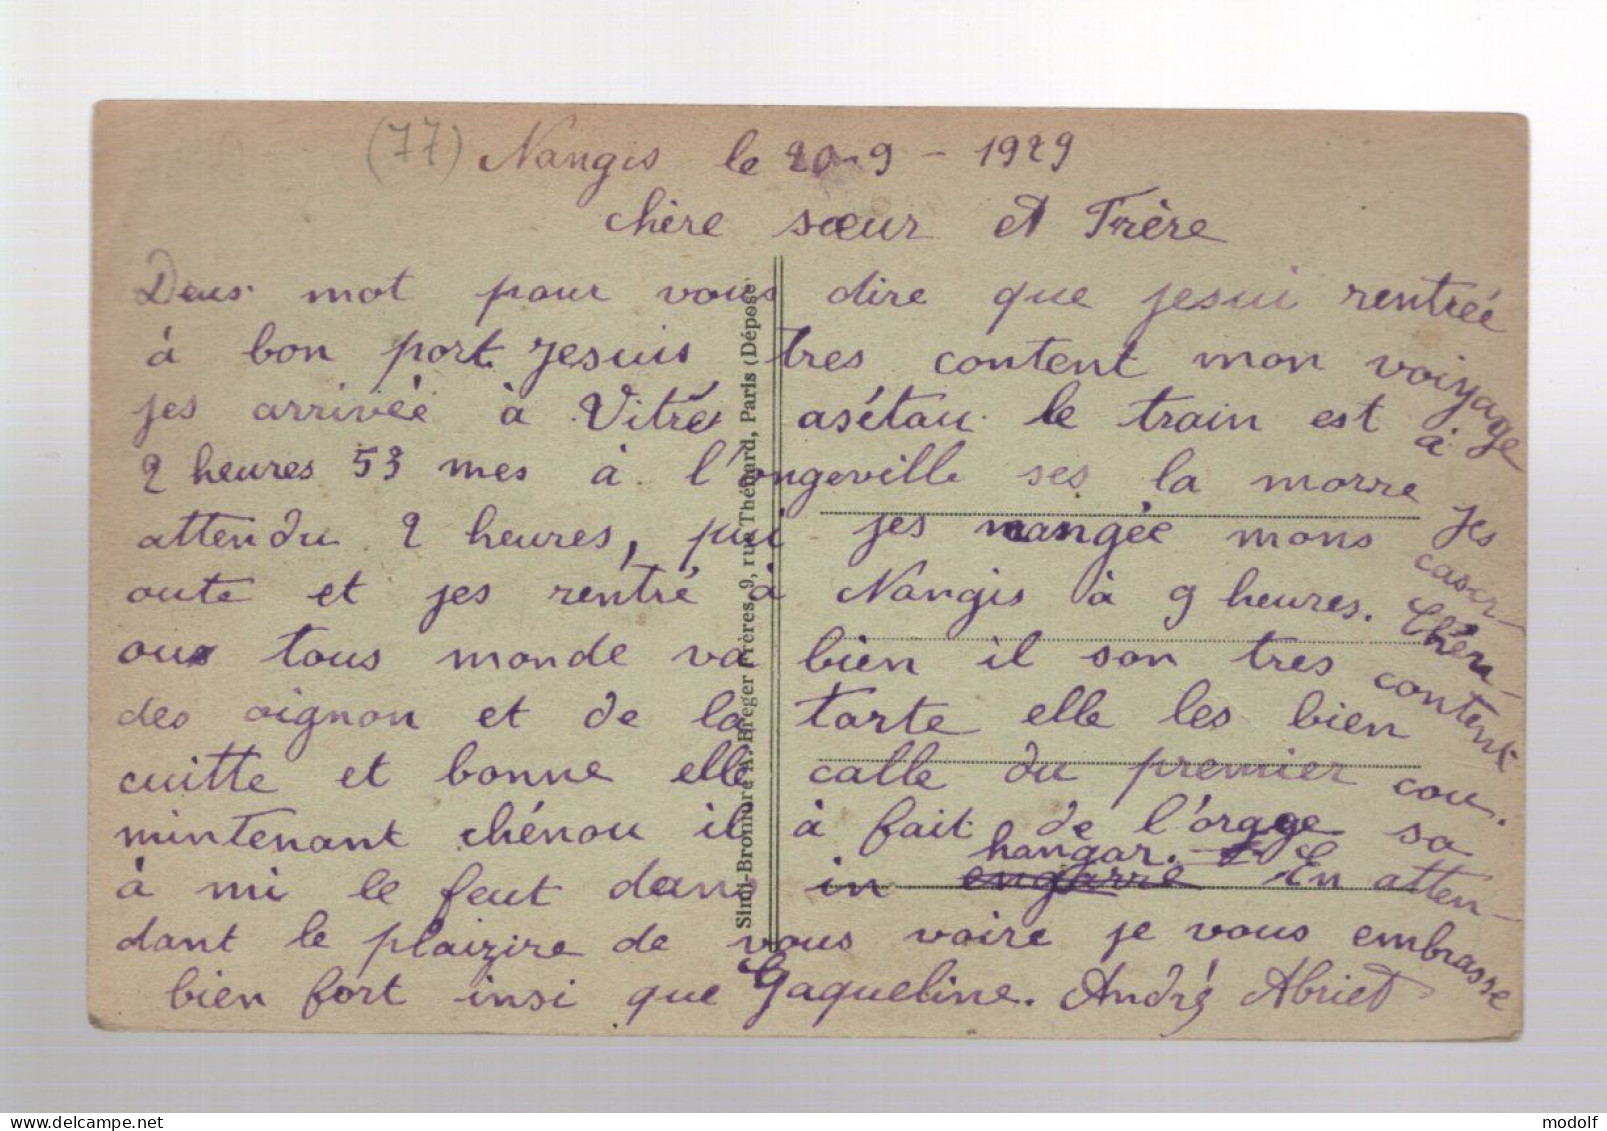 (77) Nangis le 20-9-1929
chère sœur et Frère
Deus mot pour vous dire que jesui rentrée
à bon port. jesuis tres content mon voiyage
jes arrivée à Vitré asétau le train est à
2 heures 53 mes à l'ongeville ses la morre jes
attendu 2 heures, pui jes mangée mons cascr-
oute et jes rentré à Nangis à 9 heures. Chén-
ou tous monde va bien il son tres content
des oignon et de la tarte elle les bien
cuitte et bonne elle calle du premier cou.
mintenant chénou il à fait de l'orage sa
à mi le feut dans in hangar. En atten-
dant le plaizire de vous voire je vous embrasse
bien fort insi que Gaqueline. André Abriet
Simi-Bromure A. Breger Frères, 9, rue Thénard, Paris (Déposé)
modolf